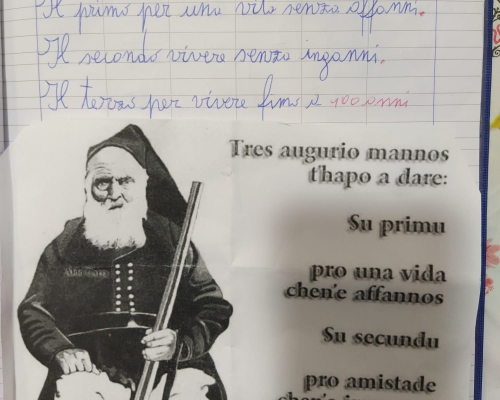 Il primo per una vita senza affanni.
Il secondo vivere senza inganni.
Il terzo per vivere fino a 100 anni
Tres augurio mannos
t'hapo a dare:
Su primu
pro una vida
chen'e affannos
Su secundu
pro amistade